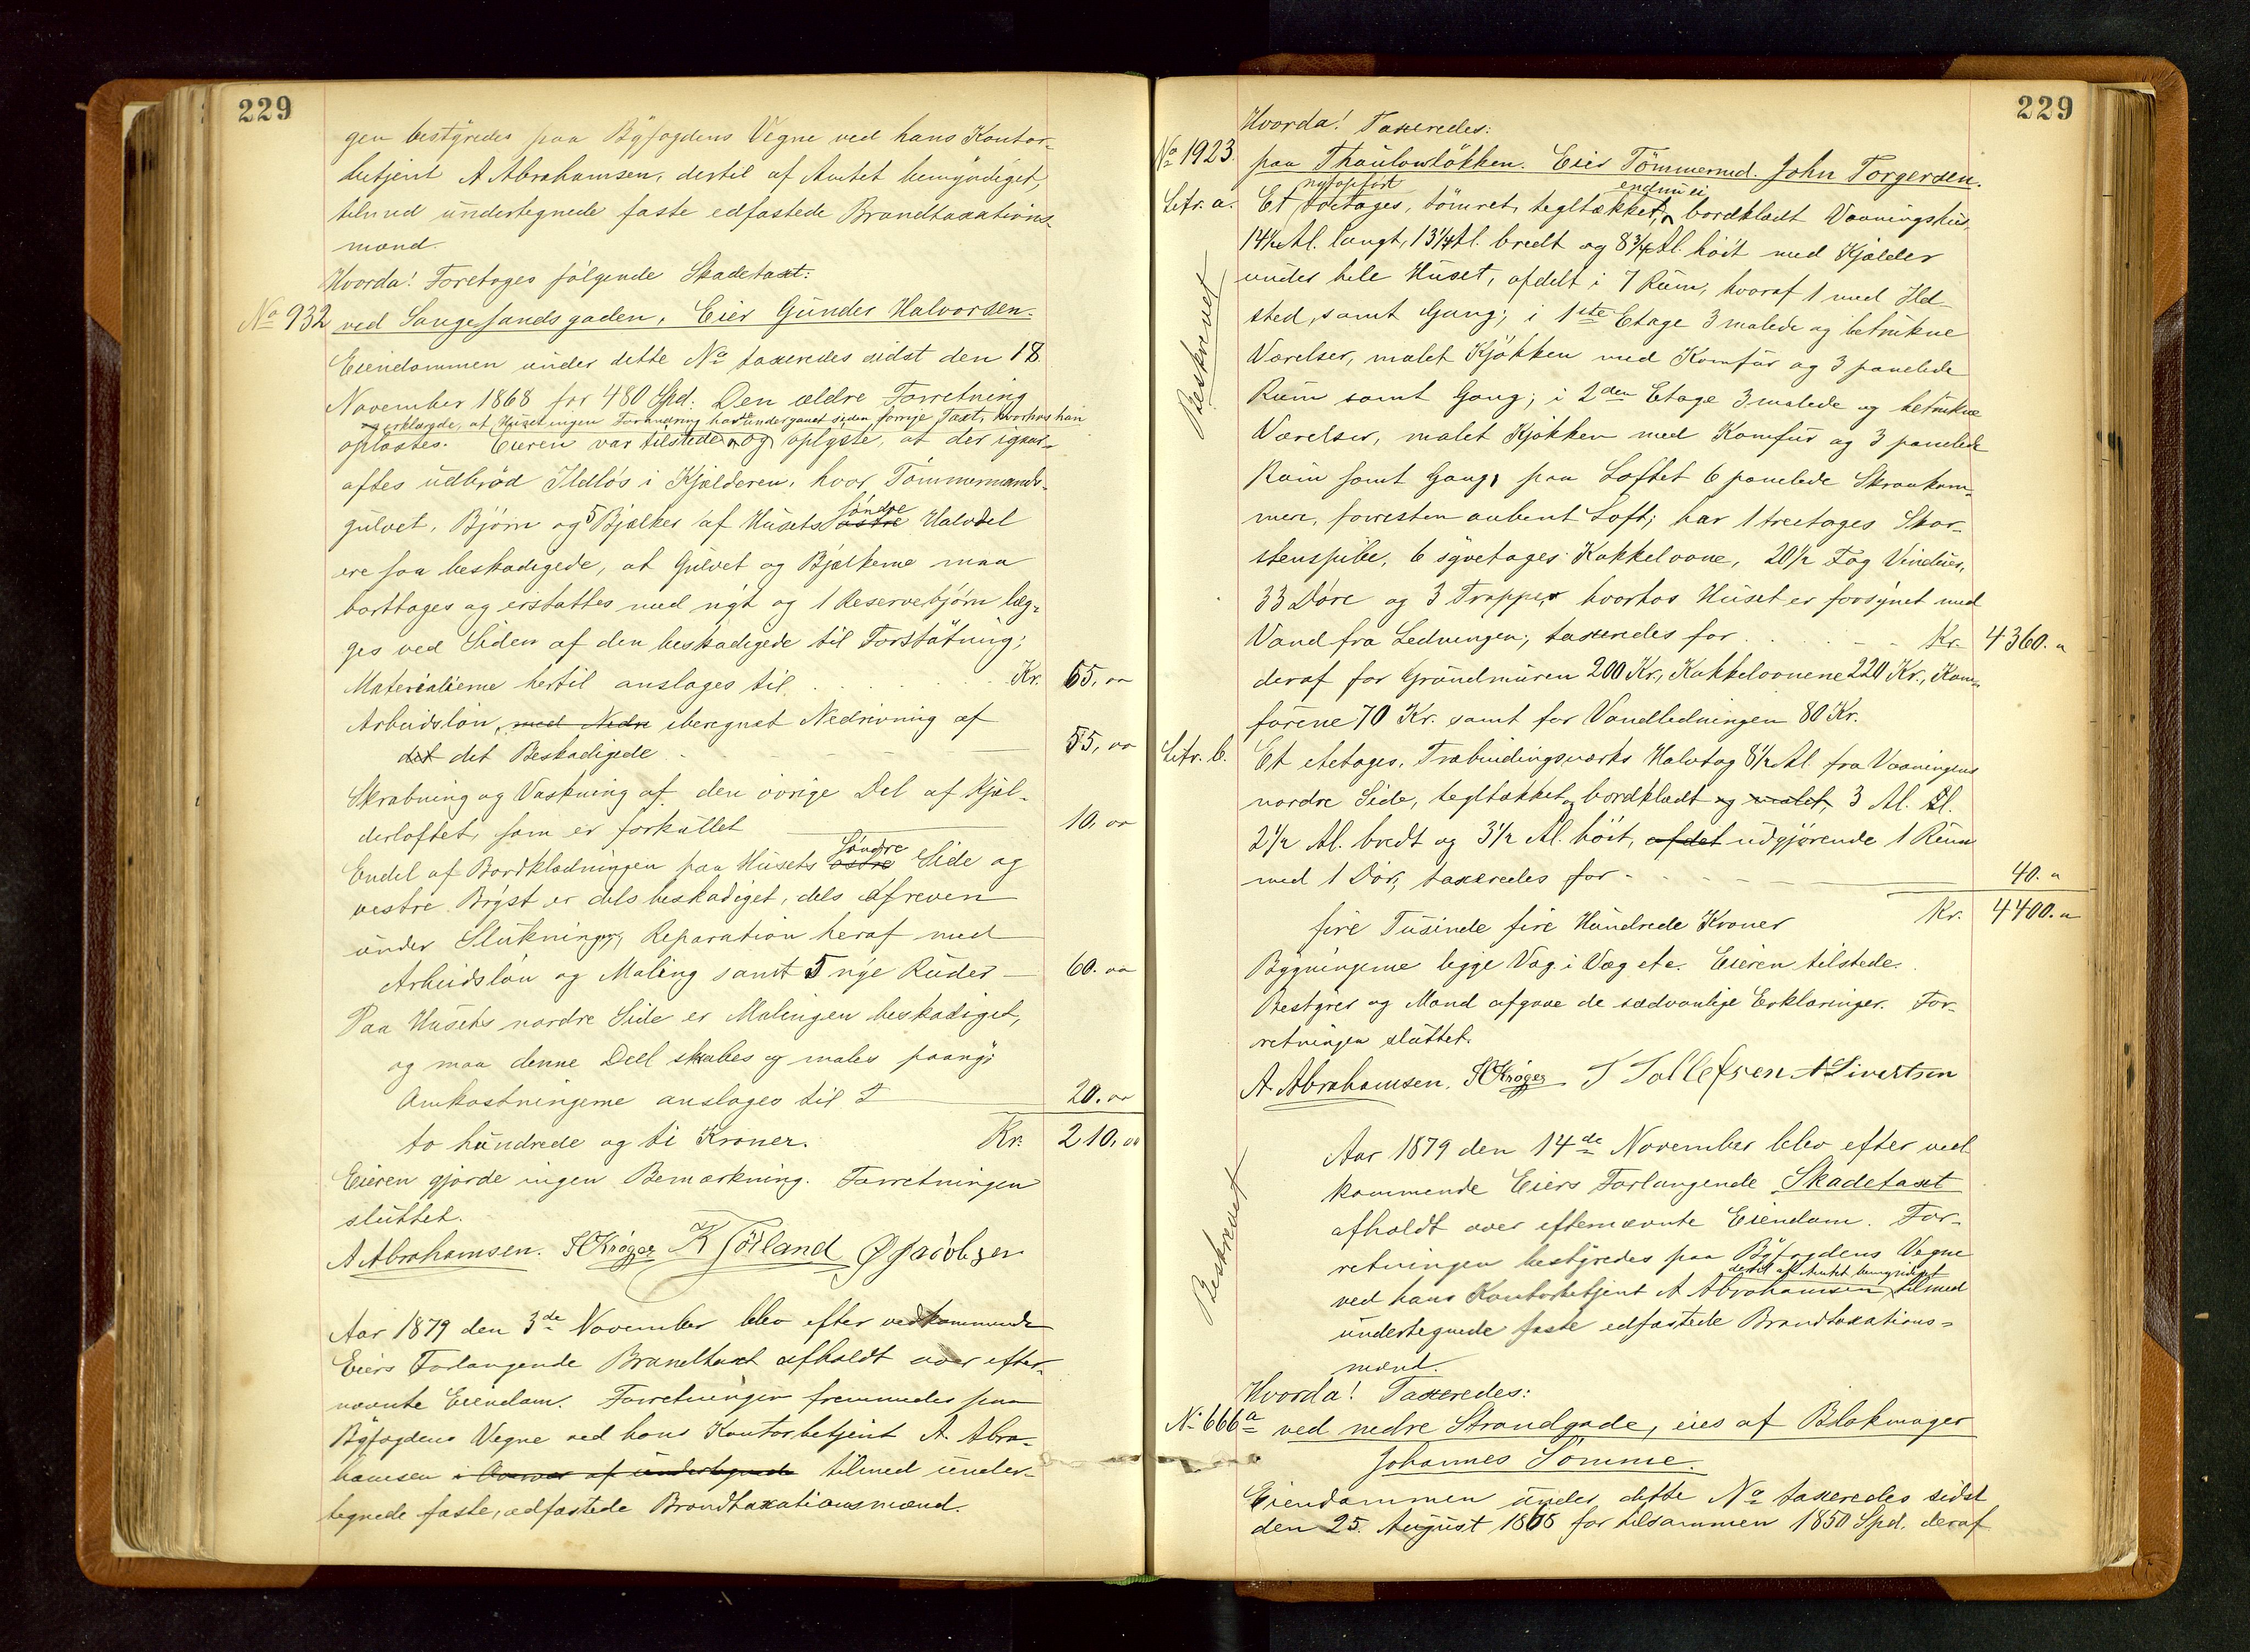 229
gen bestyredes paa Byfogdens Vegne ved hans Kontor-
betjent A Abrahamsen, dertil af Amtet bemyndiget,
tilmed undertegnede faste edfæstede Brandtaxations-
mænd.
Hvorda! Foretoges følgende Skadetaxt:
No 932 ved Langesandsgaden, Eier Gunder Halvorsen.
Eiendommen under dette No taxeredes sidst den 18
November 1868 for 480 Spd. Den ældre Forretning
og erklærede, at Huset ingen Forandring havde undergaaet siden forrige Taxt, hvorhos han
oplæstes. Eieren var tilstede og oplyste, at der igaar-
aftes udbrød Ildløs i Kjælderen, hvor Tømmermands-
gulvet, Bjørn og 5 Bjælker af Husets østre søndre Halvdel
ere saa beskadigede, at Gulvet og Bjælkerne maa
borttages og erstattes med nyt og 1 Reservebjørn læg-
ges ved Siden af den beskadigede til Forstøtning;
Materialierne hertil anslages til Kr. 65, 00
Arbeidsløn, med Nedri iberegnet Nedrivning af
det det Beskadigede 55, 00
Skrabning og Vaskning af den øvrige Del af Kjæl-
derloftet, som er forkullet 10, 00
Endel af Bordklædningen paa Husets østre Søndre Side og
vestre Bryst er dels beskadiget, dels afreven
under Slukningen, Reparation heraf med
Arbeidsløn og Maling samt 5 nye Ruder 60. 00
Paa Husets nordre Side er Malingen beskadiget,
og maa denne Deel skrabes og males paany;
Omkostningerne anslages til 20. 00
to hundrede og ti Kroner. Kr. 210, 00
Eieren gjorde ingen Bemærkning. Forretningen
sluttet.
A Abrahamsen. H Krøger K Tötland Ø Jacobsen
Aar 1879 den 3de November blev efter vedkommende
Eiers Forlangende Brandtaxt afholdt over efter-
nævnte Eiendom. Forretningen fremmedes paa
Byfogdens Vegne ved hans Kontorbetjent A. Abra-
hamsen i Overvær af undertegnede tilmed under-
tegnede faste, edfæstede Brandtaxationsmænd.
229
Hvorda! Taxeredes:
No 1923. paa Thaulowløkken. Eier Tømmermd. John Torgersen.
nyopført endnu ei
Litr. a. Et toetages, tømret, tegltækket, bordklædt Vaaningshus,
14½ Al. langt, 13¼ Al. bredt og 8¾ Al. høit med Kjælder
under hele Huset, afdelt i 7 Rum, hvoraf 1 med Ild-
sted, samt Gang; i 1ste Etage 3 malede og betrukne
Værelser, malet Kjøkken med Komfur og 3 panelede
Rum samt Gang; i 2den Etage 3 malede og betrukne
Værelser, malet Kjøkken med Komfur og 3 panelede
Rum samt Gang, paa Loftet 6 panelede Skraakam-
mere, forresten aabent Loft; har 1 treetages Skor-
stenspibe, 6 syvetages Kakkelovne, 20½ Fag Vinduer,
33 Døre og 3 Trapper, hvorhos Huset er forsynet med
Vand fra Ledningen; taxeredes for Kr. 4360. "
deraf for Grundmuren 200 Kr., Kakkelovnene 220 Kr., Kom-
førene 70 Kr. samt for Vandledningen 80 Kr.
Litr. b. Et etetages, Træbindingsværks Halvtag 8½ Al. fra Vaaningens
nordre Side, tegltækket og bordklædt og malet, 3 Al. l.
2½ Al. bredt og 3½ Al. høit, afdet udgjørende 1 Rum
med 1 Dør, taxeredes for 40. "
fire Tusinde fire Hundrede Kroner Kr. 4400. "
Bygningerne ligge Væg i Væg etc. Eieren tilstede.
Bestyrer og Mænd afgave de sædvanlige Erklæringer. For-
retningen sluttet.
A. Abrahamsen. H Krøger T Tollefsen A Sivertsen
Beskrevet
Aar 1879 den 14de November blev efter ved-
kommende Eiers Forlangende Skadetaxt
afholdt over efternævnte Eiendom. For-
retningen bestyredes paa Byfogdens Vegne
dertil af Amtet bemyndiget
ved hans Kontorbetjent A Abrahamsen, tilmed
undertegnede faste edfæstede Brandtaxations-
mænd.
Beskrevet
Hvorda! Taxeredes:
No 666a ved nedre Strandgade, eies af Blokmager
Johannes Sømme.
Eiendommen under dette No taxeredes sidst
den 25. August 1868 for tilsammen 1850 Spd. deraf